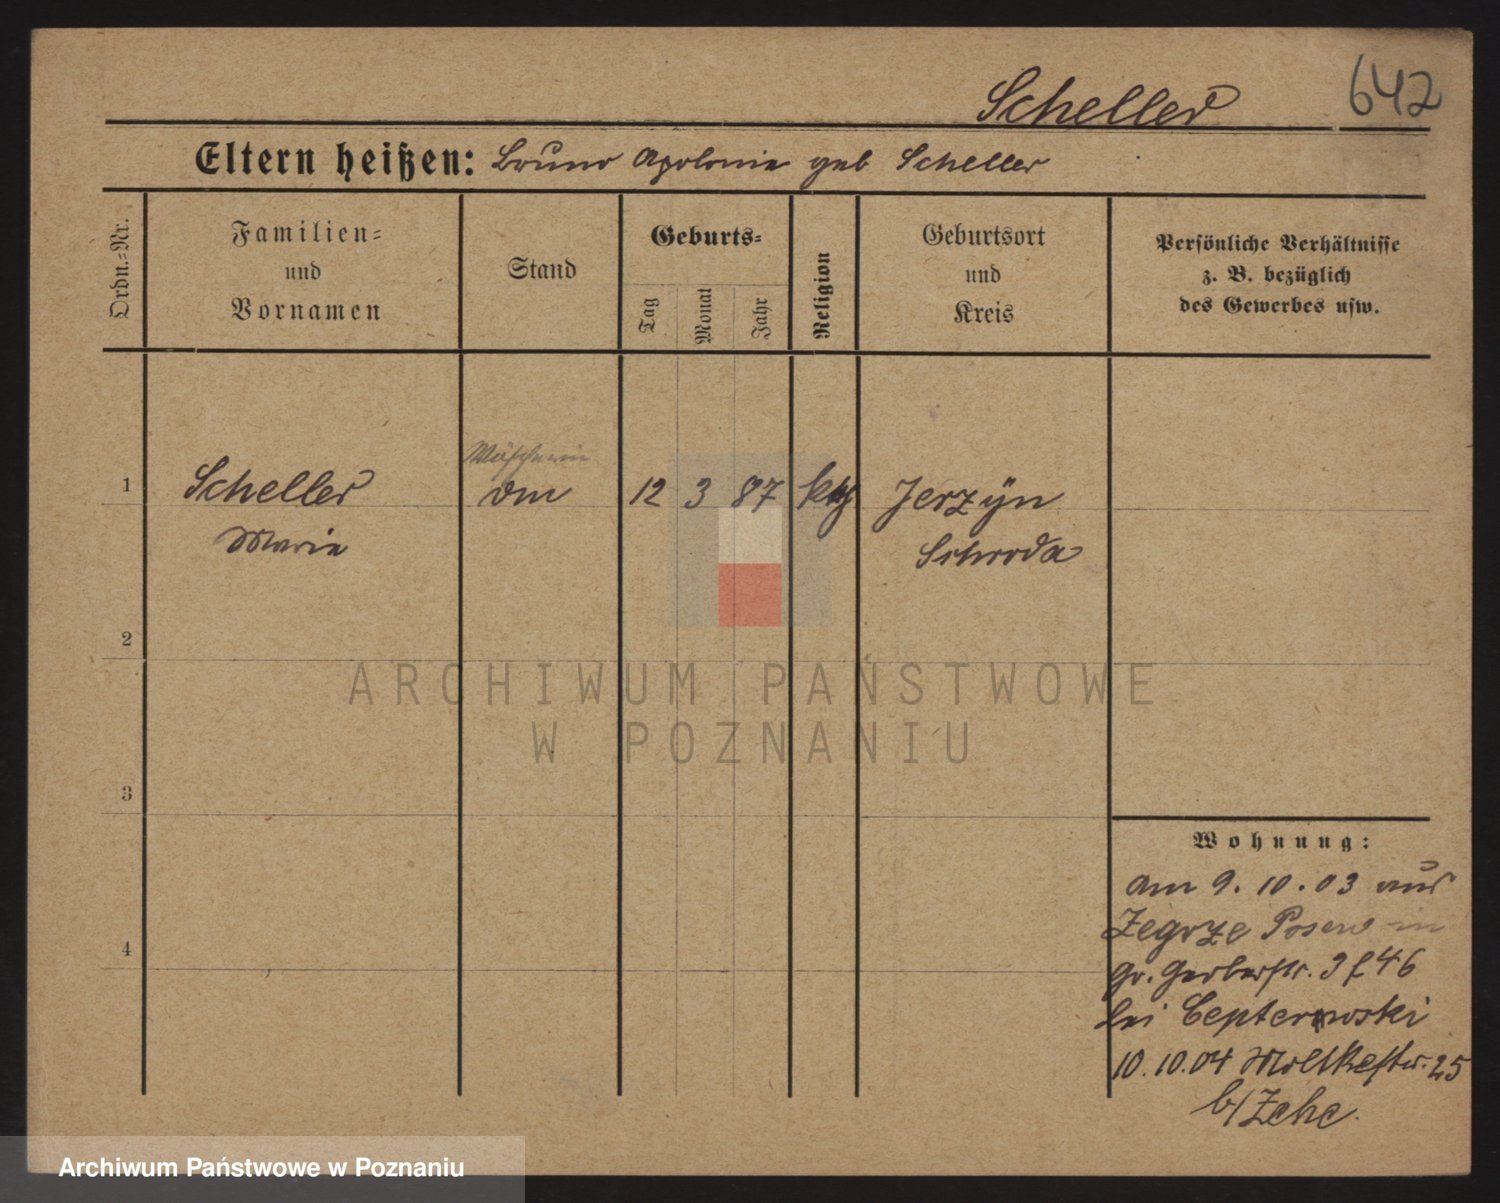 Scheller
642
Eltern heißen: Bruno Apolonie geb Scheller
Ordn.=Nr.
Familien=
und
Vornamen
Stand
Geburts=
Tag
Monat
Jahr
Religion
Geburtsort
und
Kreis
Persönliche Verhältnisse
z. B. bezüglich
des Gewerbes usw.
Wäscherin
1 Scheller 12 3 87 ktg Jerzyn
Marie Schroda
2
3
4
Wohnung:
am 9. 10. 03 aus
Zegrze Posen in
Gr. Gerberstr. 46
bei
10. 10. 04 Moltkestr. 25
b/ Zehe.
ARCHIWUM PAŃSTWOWE
W POZNANIU
Archiwum Państwowe w Poznaniu